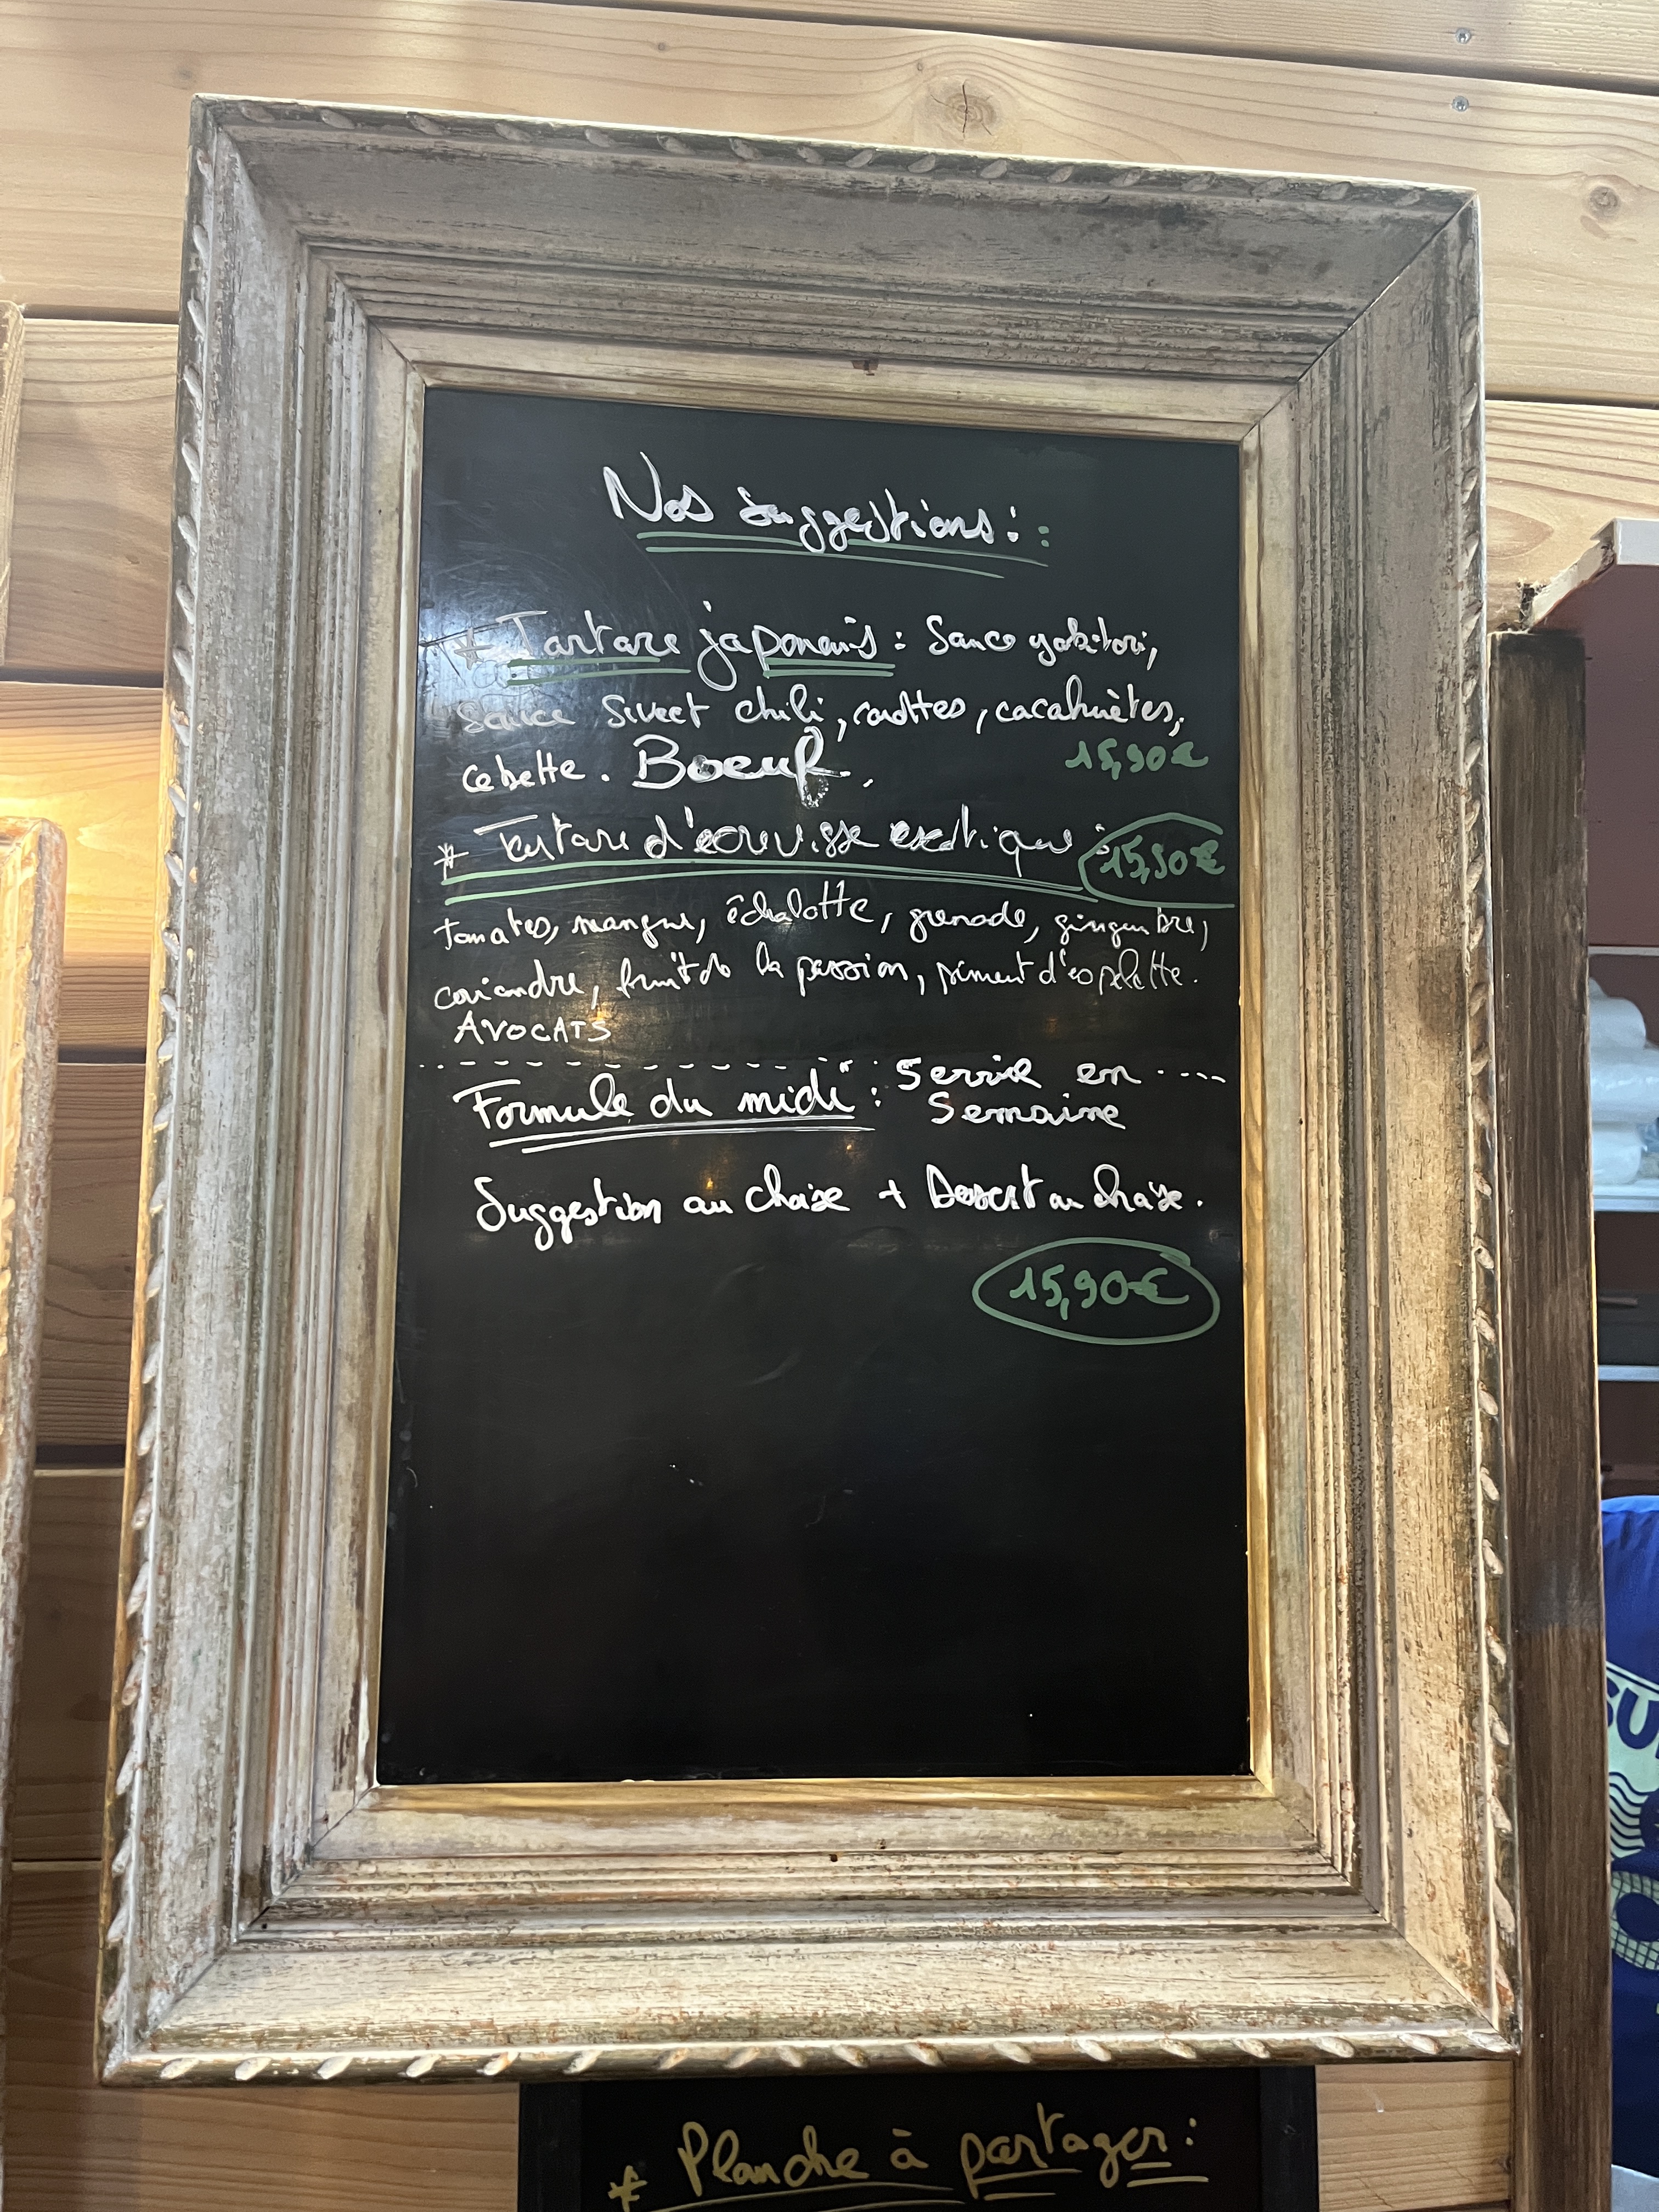 Nos suggestions :
* Tartare japonais : Sauce yakitori,
sauce sweet chili, carottes, cacahuètes,
cebette. Boeuf.
15,90€
* Tartare d'écrevisse exotique :
15,90€
tomates, mangue, échalotte, grenade, gingembre,
coriandre, fruit de la passion, piment d'espelette.
AVOCATS
Formule du midi : Servie en
Semaine
Suggestion au choix + Dessert au choix.
15,90€
* Planche à partager :
SU